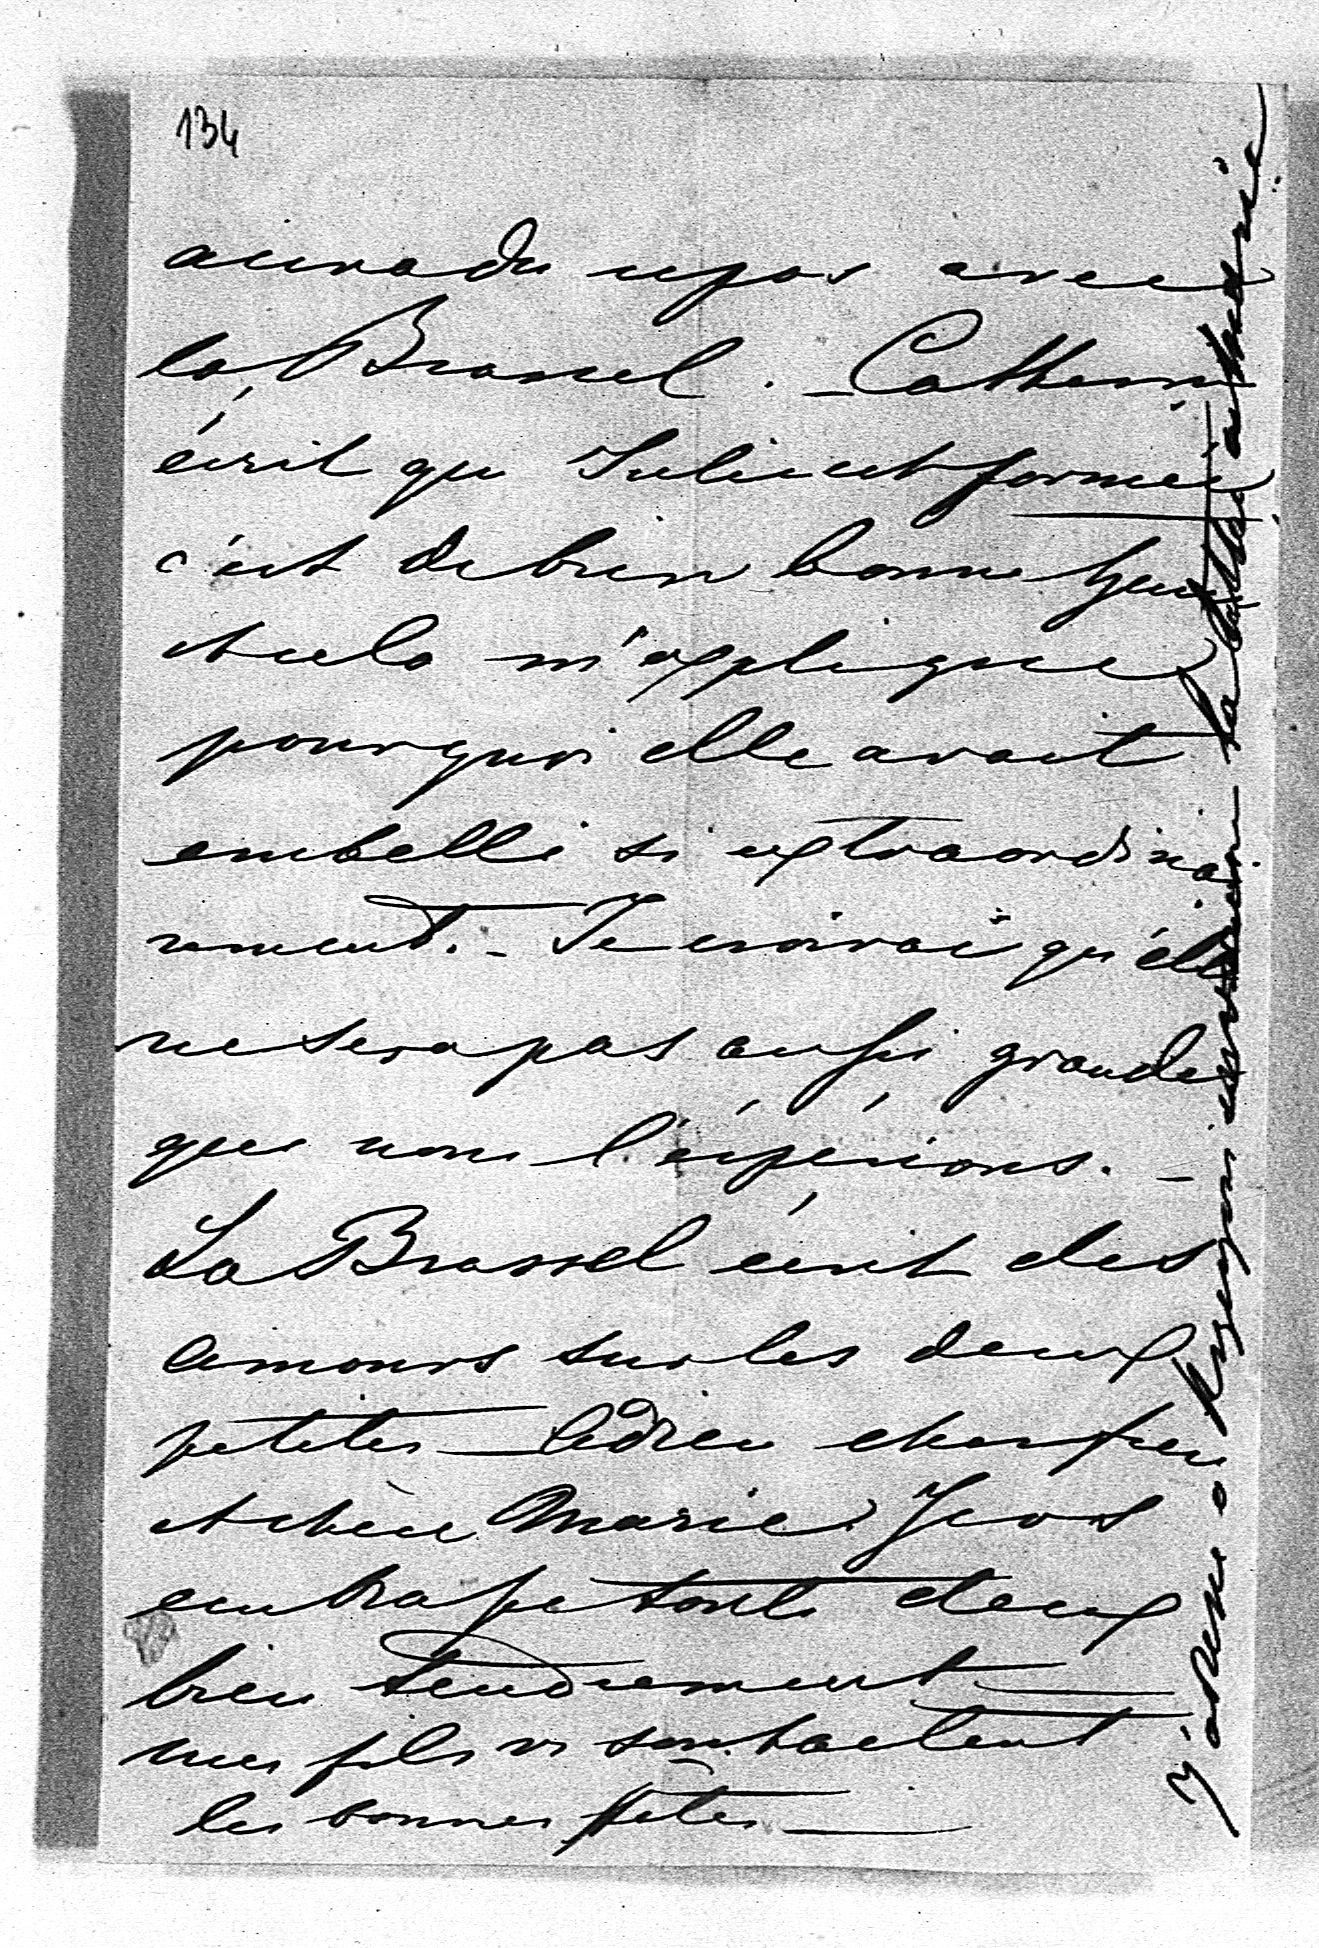 134
aura du repos avec
la Brassel. – Catherine
écrit que Julie est formée
c'est de bien bonne heure
et cela m'explique
pourquoi elle avait
embelli si extraordinai
rement. – Je croirai qu'elle
ne sera pas aussi grande
que nous l'espérions. –
La Brassel écrit des
amours sur les deux
petites – Adieu cher frère
et chère Marie. Je vous
embrasse touts deux
bien tendrement –
mes fils vs souhaitent
les bonnes fêtes –
J'adresse à la